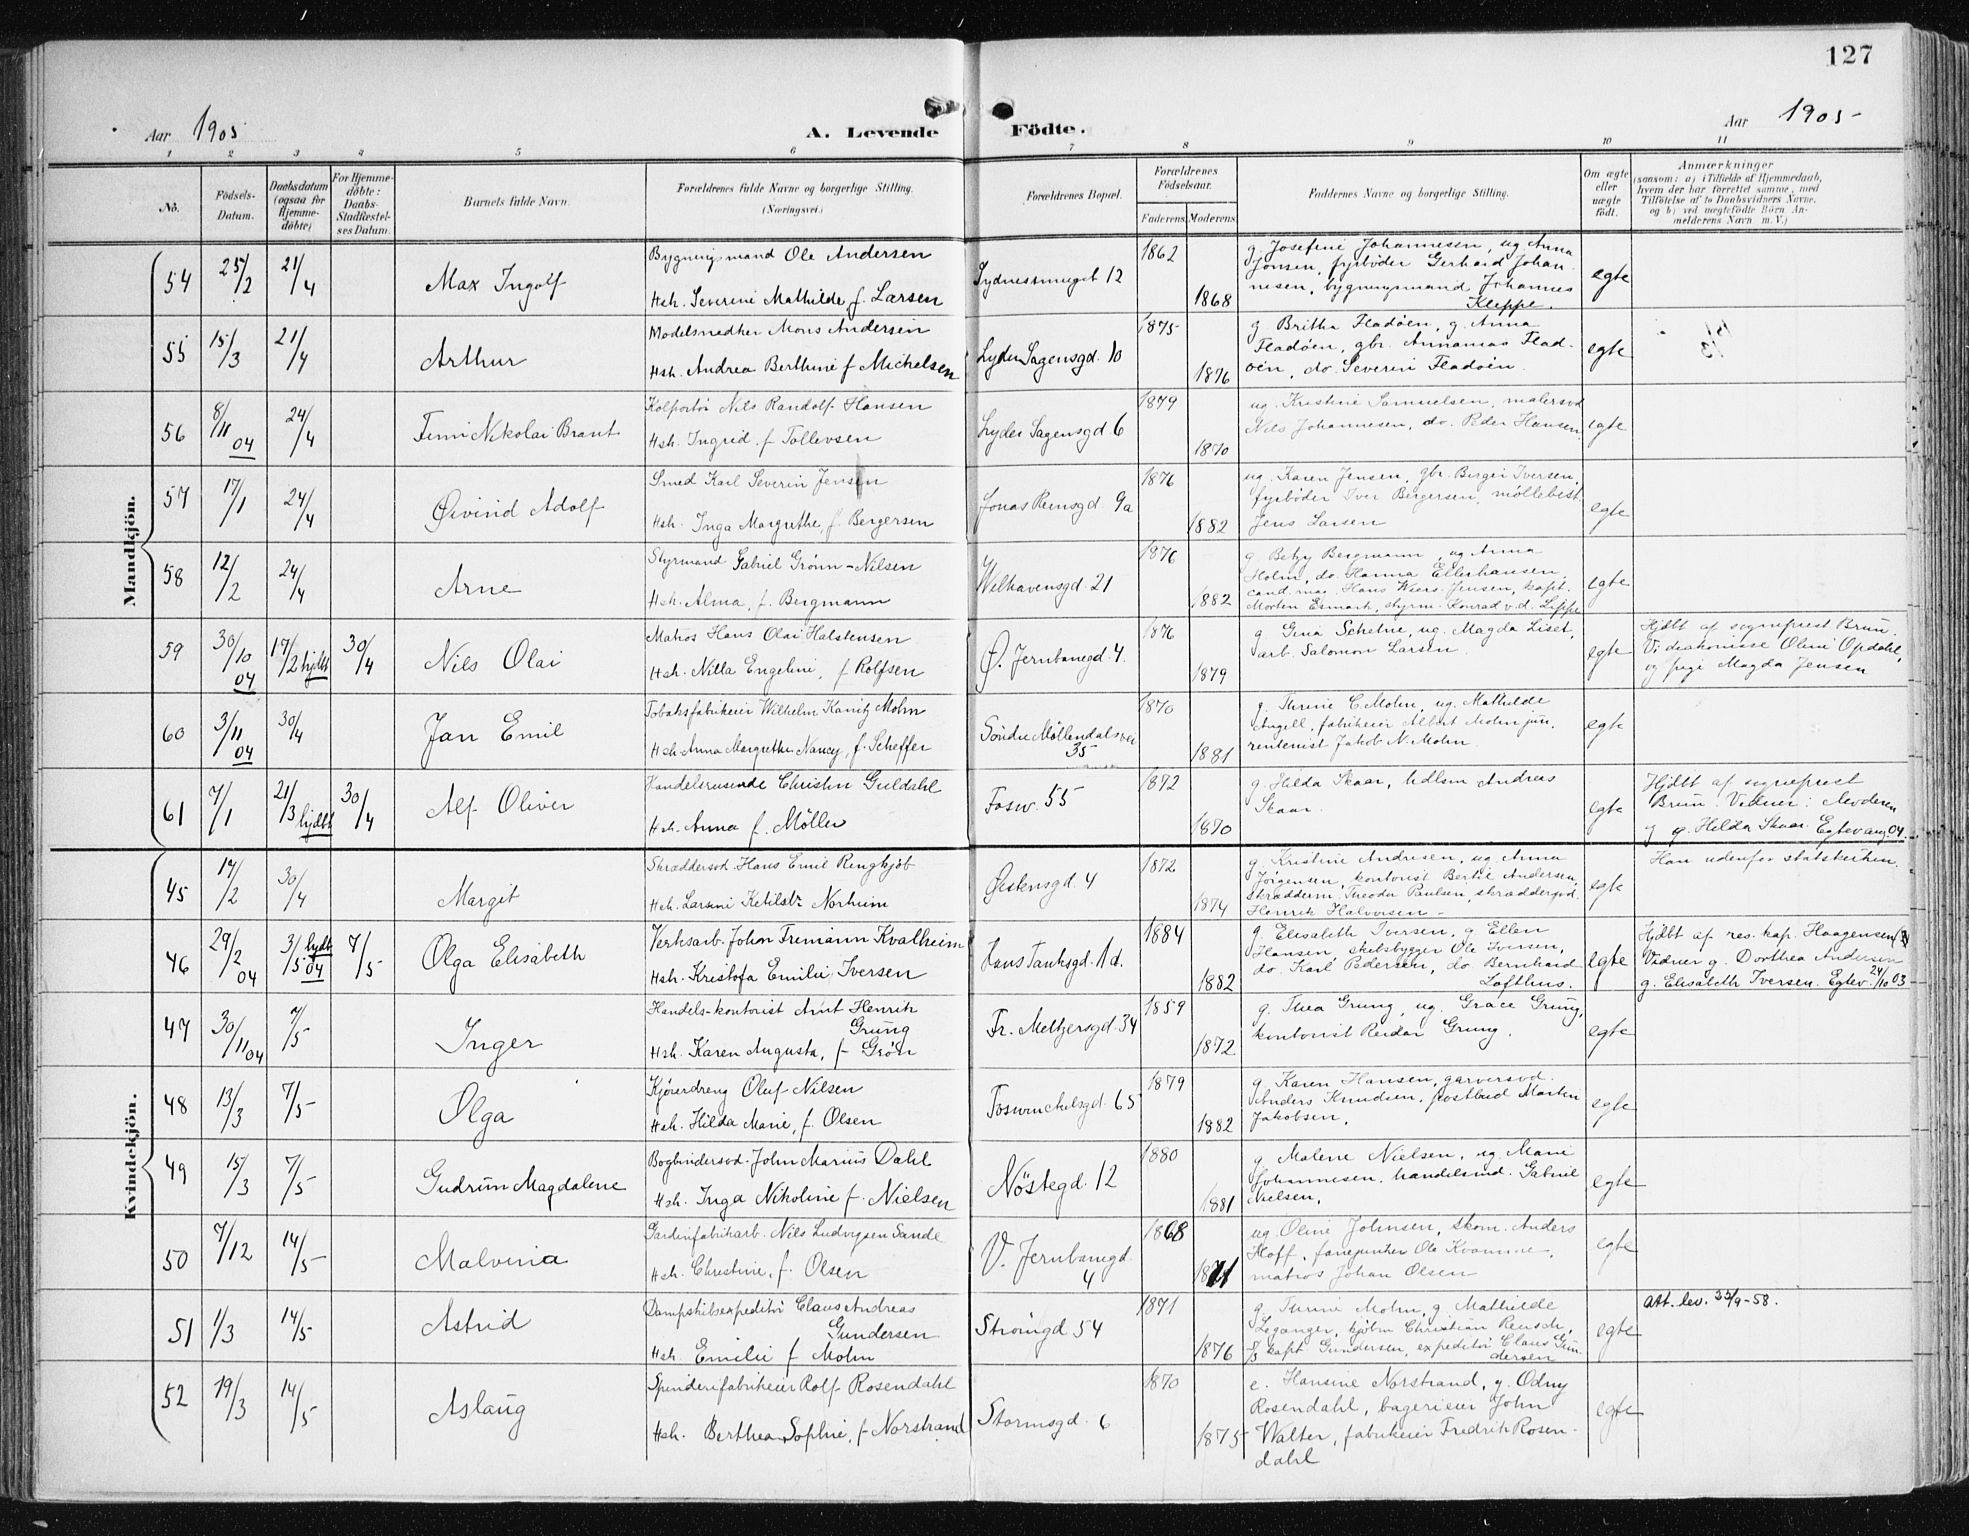 127
Aar 1905
A. Levende Födte.
Aar 1905-
1 2 3 4 5 6 7 8 9 10 11
No.
Födsels-Datum.
Daabsdatum (ogsaa for Hjemme-döbte)
For Hjemme-döbte: Daabs-Stadfæstel-ses Datum.
Barnets fulde Navn.
Forældrenes fulde Navne og borgerlige Stilling. (Næringsvei.)
Forældrenes Bopæl.
Forældrenes Födselsaar.
Faderens Moderens
Faddernes Navne og borgerlige Stilling.
Om ægte eller uægte födt.
Anmærkninger
(saasom: a) i Tilfælde af Hjemmedaab,
hvem der har forrettet samme, med
Tilföielse af to Daabsvidners Navne,
og b) ved uægtefödte Börn An-
melderens Navn m. V.)
Mandkjön.
54 25/2 21/4 Max Ingolf
Bygningsmand Ole Andersen
Hsh. Severine Mathilde f. Larsen
Sydnessmuget 12
1862 1868
g. Josefine Johannesen, ug. Anna
Jonsen, fyrböder Gerhard Johan-
nesen, bygningsmand Johannes
Kleppe.
egte
55 15/3 21/4 Arthur
Modelsnedker Mons Andersen
Hsh. Andrea Berthine f Michelsen
Lyder Sagensgd. 10
1875 1876
g. Britha Fladöen, g. Anna
Fladöen, gbr. Annanias Flad-
öen, do. Severin Fladöen.
egte
56 8/11 04 24/4 Finn Nikolai Brant
Kolportör Nils Randolf Hansen
Hsh. Ingrid, f Tollevsen
Lyder Sagensgd 6
1879 1870
ug. Kristine Samuelsen, malersvd
Nils Johannesen, do. Peder Hansen.
egte
57 17/1 24/4 Øivind Adolf
Smed Karl Severin Jensen
Hsh. Inga Margrethe, f. Bergersen
Jonas Reinsgd. 9a
1876 1882
ug. Karen Jensen, gbr. Birger Iversen,
fyrböder Iver Bergersen, möllebest.
Jens Larsen
egte
58 12/2 24/4 Arne
Styrmand Gabriel Grönn-Nilsen
Hsh. Alma, f. Bergmann
Welhavensgd. 21
1876 1882
g Betzy Bergmann, ug Anna
Holm, do. Hanna Ellerhausen,
cand. mag. Hans Wiers-Jensen, kapt.
Morten Esmark, styrm. Konrad v. d. Lippe
egte
59 30/10 04 17/2 hjdbt 30/4 Nils Olai
Matros Hans Olai Halstensen
Hsh. Nilla Engeline, f Rolfsen
Ø. Jernbanegd. 4.
1876 1879
g Gina Schelne, ug. Magda Liset,
arb. Salomon Larsen.
egte
Hjdbt af sogneprest Brun.
V: diakonisse Oline Opdahl,
og pige Magda Jensen
60 3/11 04 30/4 Jan Emil
Tobaksfabrikeier Wilhelm Kanitz Mohn
Hsh Anna Margrethe Nancy, f. Scheffer
Söndre Möllendalsvei
35
1870 1881
g. Thrine C. Mohn, ug. Mathilde
Angell, fabrikeier Albert Mohn jun,
rentenist Jakob N. Mohn.
egte
61 7/1 21/3 hjdbt 30/4 Alf Oliver
Handelsreisende Christen Guldahl
Hsh. Anna f. Möller
Fosw. 55
1872 1870
g. Hilda Skaar, hdlsm Andreas
Skaar.
egte
Hjdbt af sogneprest
Brun. Vidner: Moderen
og g. Hilda Skaar. Egtev aug. 04.
Kvindekjön.
45 14/2 30/4 Margit
Skræddersvd. Hans Emil Ringkjöb
Hsh. Larsine Ketilstr Norheim
Østensgd. 4
1872 1874
g. Kristine Andresen, ug. Anna
Jörgensen, kontorist Bertil Andersen,
skrædderm. Theodor Paulsen, skræddersvd.
Henrik Halvorsen -
egte
Han udenfor statskirken.
46 29/2 04 3/5 hjdbt 04 7/5 Olga Elisabeth
Verksarb. John Tremann Kvalheim
Hsh. Kristofa Emilie Iversen
Hans Tanksgd. 1d.
1884 1882
g. Elisabeth Iversen, g Ellen
Hansen, skibsbygger Ole Iversen,
do. Karl Pedersen, do. Bernhard
Lofthus.
egte
Hjdbt af res. kap. Haagensen
Vidner g. Dorthea Andersen
g. Elisabeth Iversen. Egtev. 24/10 03
47 30/11 04 7/5 Inger
Handels-kontorist Arnt Henrik
Grung
Hsh. Karen Augusta, f. Grön
Fr. Meltzersgd. 34
1859 1872
g. Thea Grung, ug. Grace Grung,
kontorist Reidar Grung.
egte
48 13/3 7/5 Olga
Kjöredreng Oluf Nilsen
Hsh. Hilda Marie, f. Olsen
Foswinckelsgd. 65
1879 1882
g. Karen Hansen, garversvd.
Anders Knudsen, postbud Martin
Jakobsen.
egte
49 15/3 7/5 Gudrun Magdalene
Bogbindersvd. John Marius Dahl
Hsh. Inga Nikoline f. Nielsen
Nöstegd. 12
1880 1881
g Malene Nielsen, ug. Marie
Johannesen, handelsmd. Gabriel
Nielsen.
egte
50 7/12 14/5 Malvina
Gardinfabrikarb. Nils Ludvigsen Sande
Hsh. Christine, f. Olsen
V. Jernbanegd.
4
1868 1871
ug. Oline Johnsen, skom. Anders
Hoff, Ole Kvamme,
matros Johan Olsen
egte
51 1/3 14/5 Astrid
Dampskibsexpeditör Claus Andreas
Gundersen
Hsh. Emilie f Mohn
Ströingd 54
1871 1876
g. Thrine Mohn, g. Mathilde
Leganger, kjöbm Christian Reusch,
kapt Gundersen, expeditör Claus Gun-
dersen
egte
Att. lev. 33/9-58.
52 19/3 14/5 Aslaug
Spenderifabrikeier Rolf Rosendahl
Hsh. Berthea Sophie, f Norstrand
Stormsgd. 6
1870 1875
e. Hansine Norstrand, g. Odny
Rosendahl, bagerieier John
Walter, fabrikeier Fredrik Rosen-
dahl
egte